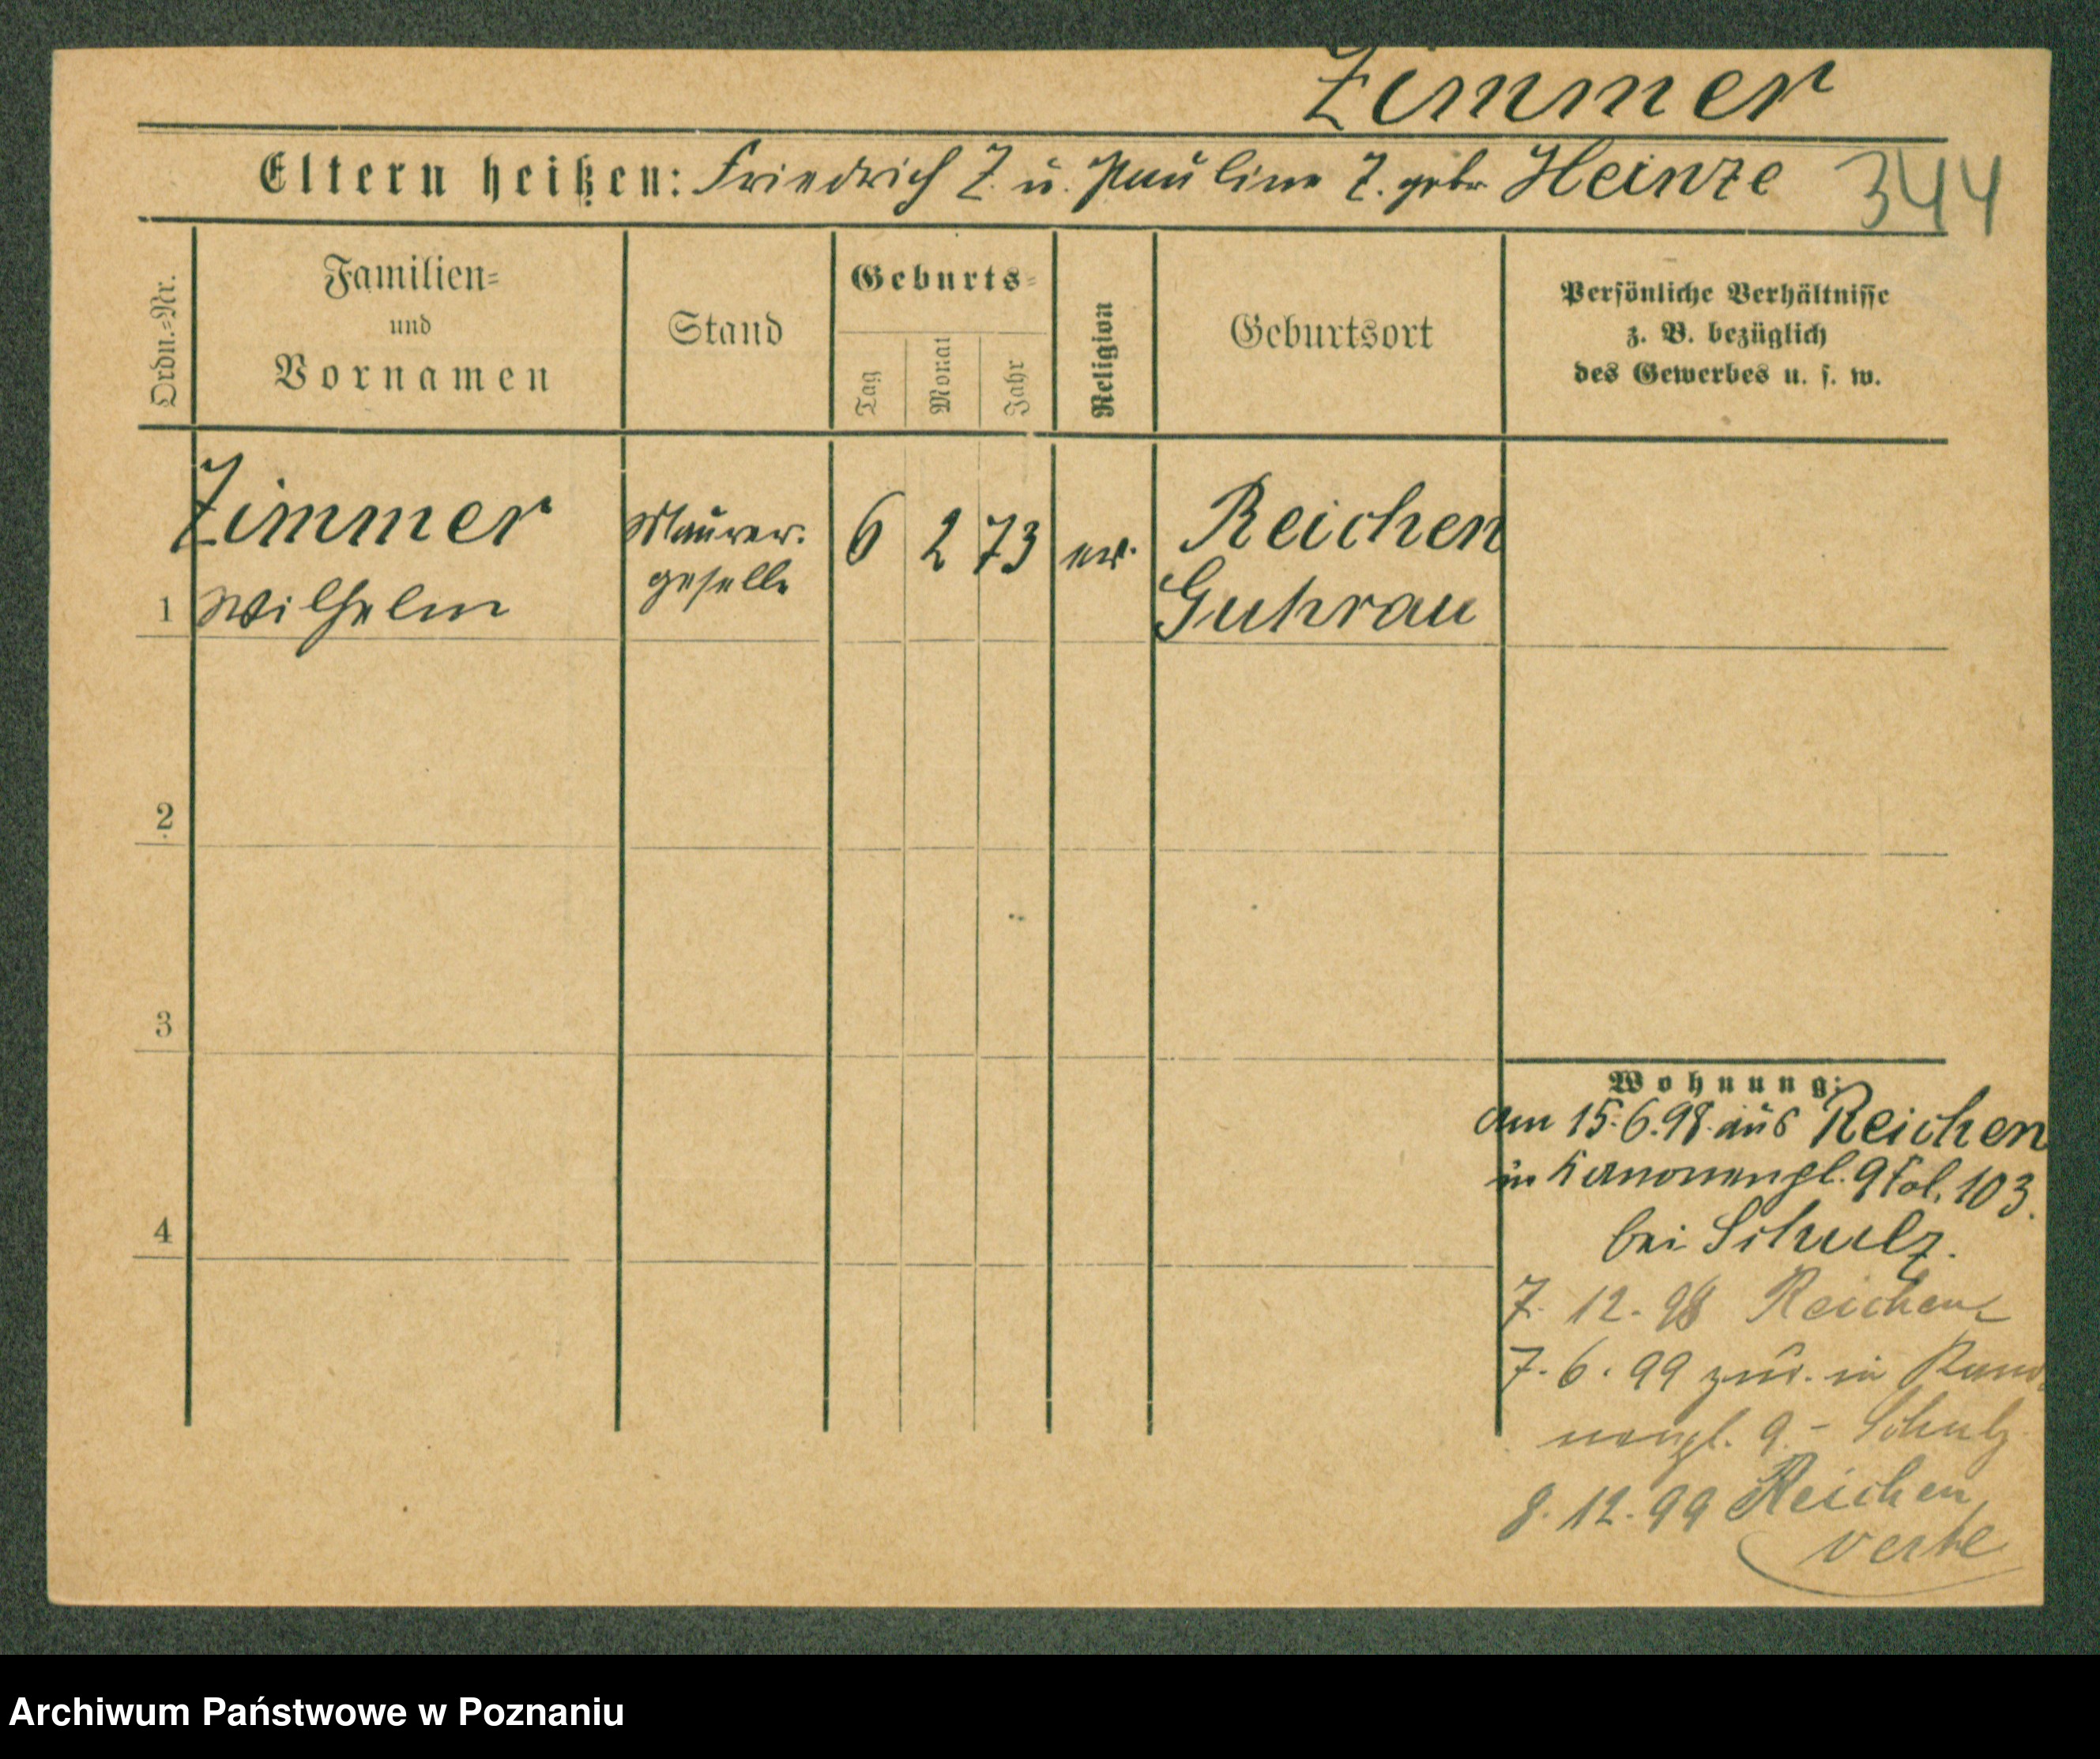 Zimmer
Eltern heißen: Friedrich Z. u. Pauline Z. gebr Heinze 344
Ordn.-Nr.
Familien-
und
Vornamen
Stand
Geburts-
Tag
Monat
Jahr
Religion
Geburtsort
Persönliche Verhältnisse
z. B. bezüglich
des Gewerbes u. s. w.
1 Zimmer
Wilhelm
Maurer-
geselle
6 2 73 ev.
Reichen
Guhrau
2
3
4
Wohnung:
am 15.6.98. aus Reichen
in Kanonenpl. 9 Fol. 103.
bei Schulz.
7. 12. 98 Reichen
7. 6. 99 zur. in Kano-
nenpl. 9 - Schulz
8. 12. 99 Reichen
Archiwum Państwowe w Poznaniu